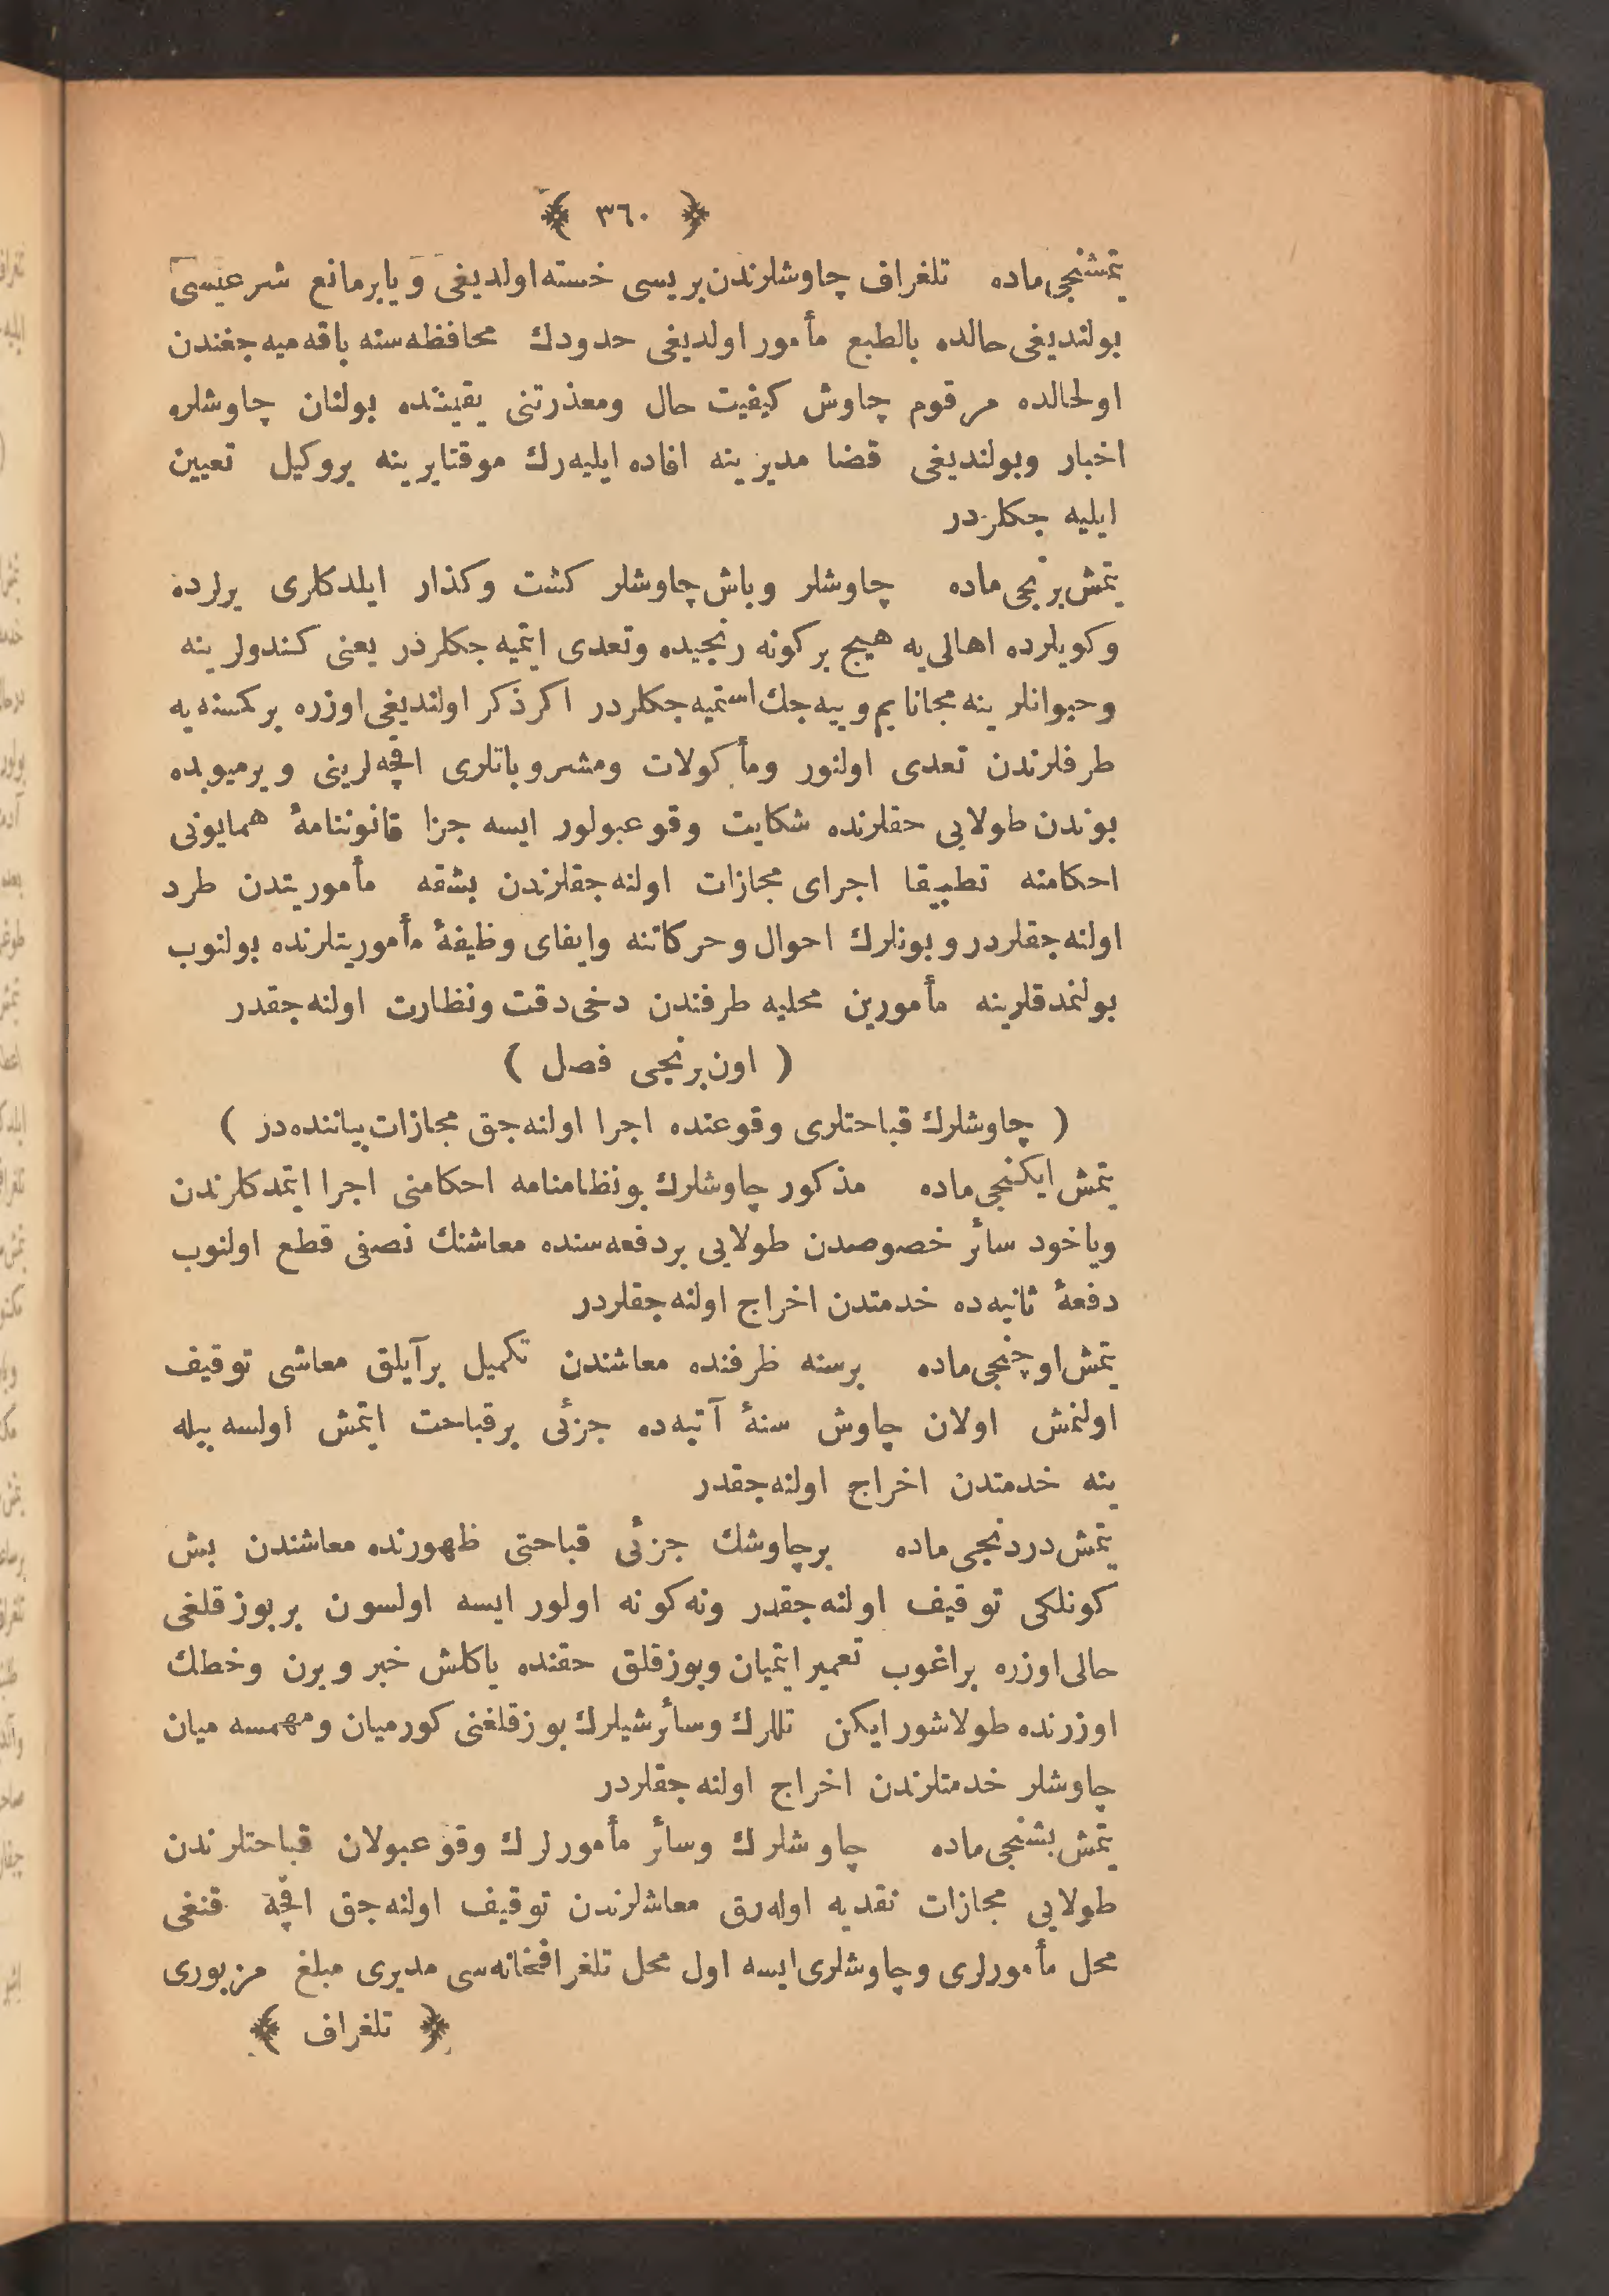 ﴿ ٣٦٠ ﴾
يتمشنجی ماده تلغراف چاوشلرندن بريسی خسته اولديغی ويا بر مانع شرعيسی
بولنديغی حالده بالطبع مأمور اولديغی حدودك محافظه سنه باقه ميه جغندن
اولحالده مرقوم چاوش كيفيت حال ومعذرتنی يقيننده بولنان چاوشلره
اخبار وبولنديغی قضا مديرينه افاده ايليه رك موقتا يرينه بر وكيل تعيين
ايليه جكلردر
يتمش برنجی ماده چاوشلر وباش چاوشلر كشت وكذار ايلدكلری يرلرده
وكويلرده اهالی يه هيچ بر كونه رنجيده وتعدی ايتميه جكلردر يعنی كندولرينه
وحيوانلرينه مجانا يم وييه جك استميه جكلردر اكر ذكر اولنديغی اوزره بر كمسنه يه
طرفلرندن تعدی اولنور ومأكولات ومشروباتلری اقچه لرينی ويرميوبده
بوندن طولايی حقلرنده شكايت وقوعبولور ايسه جزا قانوننامۀ همايونی
احكامنه تطبيقا اجرای مجازات اولنه جقلرندن بشقه مأموريتدن طرد
اولنه جقلردر وبونلرك احوال وحركاتنه وايفای وظيفۀ مأموريتلرنده بولنوب
بولنمدقلرينه مأمورين محليه طرفندن دخی دقت ونظارت اولنه جقدر
( اون برنجی فصل )
( چاوشلرك قباحتلری وقوعنده اجرا اولنه جق مجازات بياننده در )
يتمش ايكنجی ماده مذكور چاوشلرك بونظامنامه احكامنی اجرا ايتمدكلرندن
وياخود سائر خصوصدن طولايی بر دفعه سنده معاشنك نصفی قطع اولنوب
دفعۀ ثانيه ده خدمتدن اخراج اولنه جقلردر
يتمش اوچنجی ماده بر سنه ظرفنده معاشندن تكميل بر آيلق معاشی توقيف
اولنمش اولان چاوش سنۀ آتيه ده جزئی بر قباحت ايتمش اولسه بيله
ينه خدمتدن اخراج اولنه جقدر
يتمش دردنجی ماده بر چاوشك جزئی قباحتی ظهورنده معاشندن بش
كونلكی توقيف اولنه جقدر ونه كونه اولور ايسه اولسون بر بوزقلغی
حالی اوزره براغوب تعمير ايتميان وبوزقلق حقنده ياكلش خبر ويرن وخطك
اوزرنده طولاشور ايكن تللرك وسائر شيلرك بوزقلغنی كورميان ومهمسه ميان
چاوشلر خدمتلرندن اخراج اولنه جقلردر
يتمش بشنجی ماده چاوشلرك وسائر مأمورلرك وقوعبولان قباحتلرندن
طولايی مجازات نقديه اوله رق معاشلرندن توقيف اولنه جق اقچه قنغی
محل مأمورلری وچاوشلری ايسه اول محل تلغرافخانه سی مديری مبلغ مزبوری
﴿ تلغراف ﴾